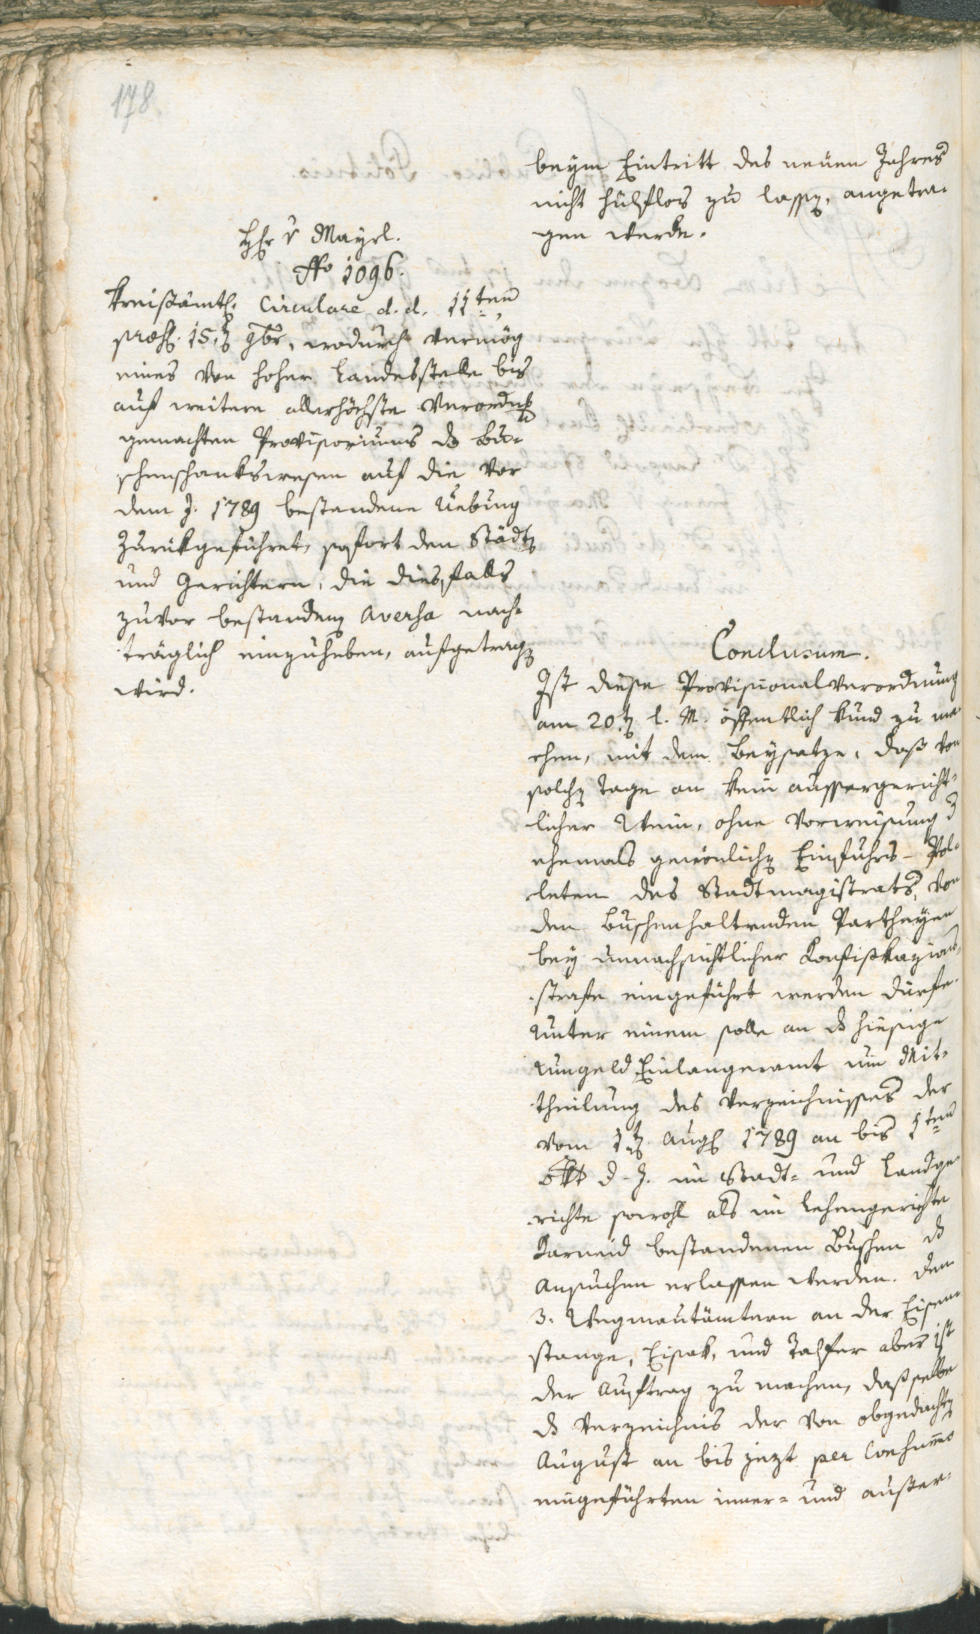 178.
Hr. v Mayrl.
No 1096.
Kreißämtl. Circulare d. d. 11ten,
præs. 15.ten 9br, wodurch vermög
eines von hoher Landesstelle bis
auf weitere allerhöchste Verordng
gemachten Provisoriums dz Bu-
schenschankswesen auf die vor
dem J. 1789 bestandene Uebung
zurükgeführet, sofort den Städten
und Gerichtern, die diesfalls
zuvor bestanden Aversa nach-
träglich einzuheben, aufgetragen
wird.
beym Eintritt des neuen Jahres
nicht hülflos zu lassen, angetra-
gen werde.
Conclusum.
Ist diese Provisionalverordnung
am 20.ten l. M. öffentlich kund zu ma-
chen, mit dem Beysatze, daß von
solchen Tage an kein aussergericht-
licher Wein, ohne Vorweisung d
ehemals gewönlichen Einfuhrs-Pol-
leten des Stadtmagistrats, von
den Buschenhaltenden Partheyen
bey unnachsichtlicher Konfiskazions-
strafe eingeführt werden dürfe.
Unter einem solle an dz hiesige
Umgeld Einlangeramt um Mit-
theilung des Verzeichnisses der
vom 1ten Aug 1789 an bis 1ten
8br d. J. im Stadt- und Landge-
richte sowohl als im Lehengerichte
Karneid bestandenen Buschen dz
Ansuchen erlassen werden. Den
3. Wegmautämtern an der Eisen-
stange, Eisak, und Talfer aber ist
der Auftrag zu machen, daß selbe
dz Verzeichnis der von obgedachten
August an bis jezt per Consumo
eingeführten inner- und ausser-